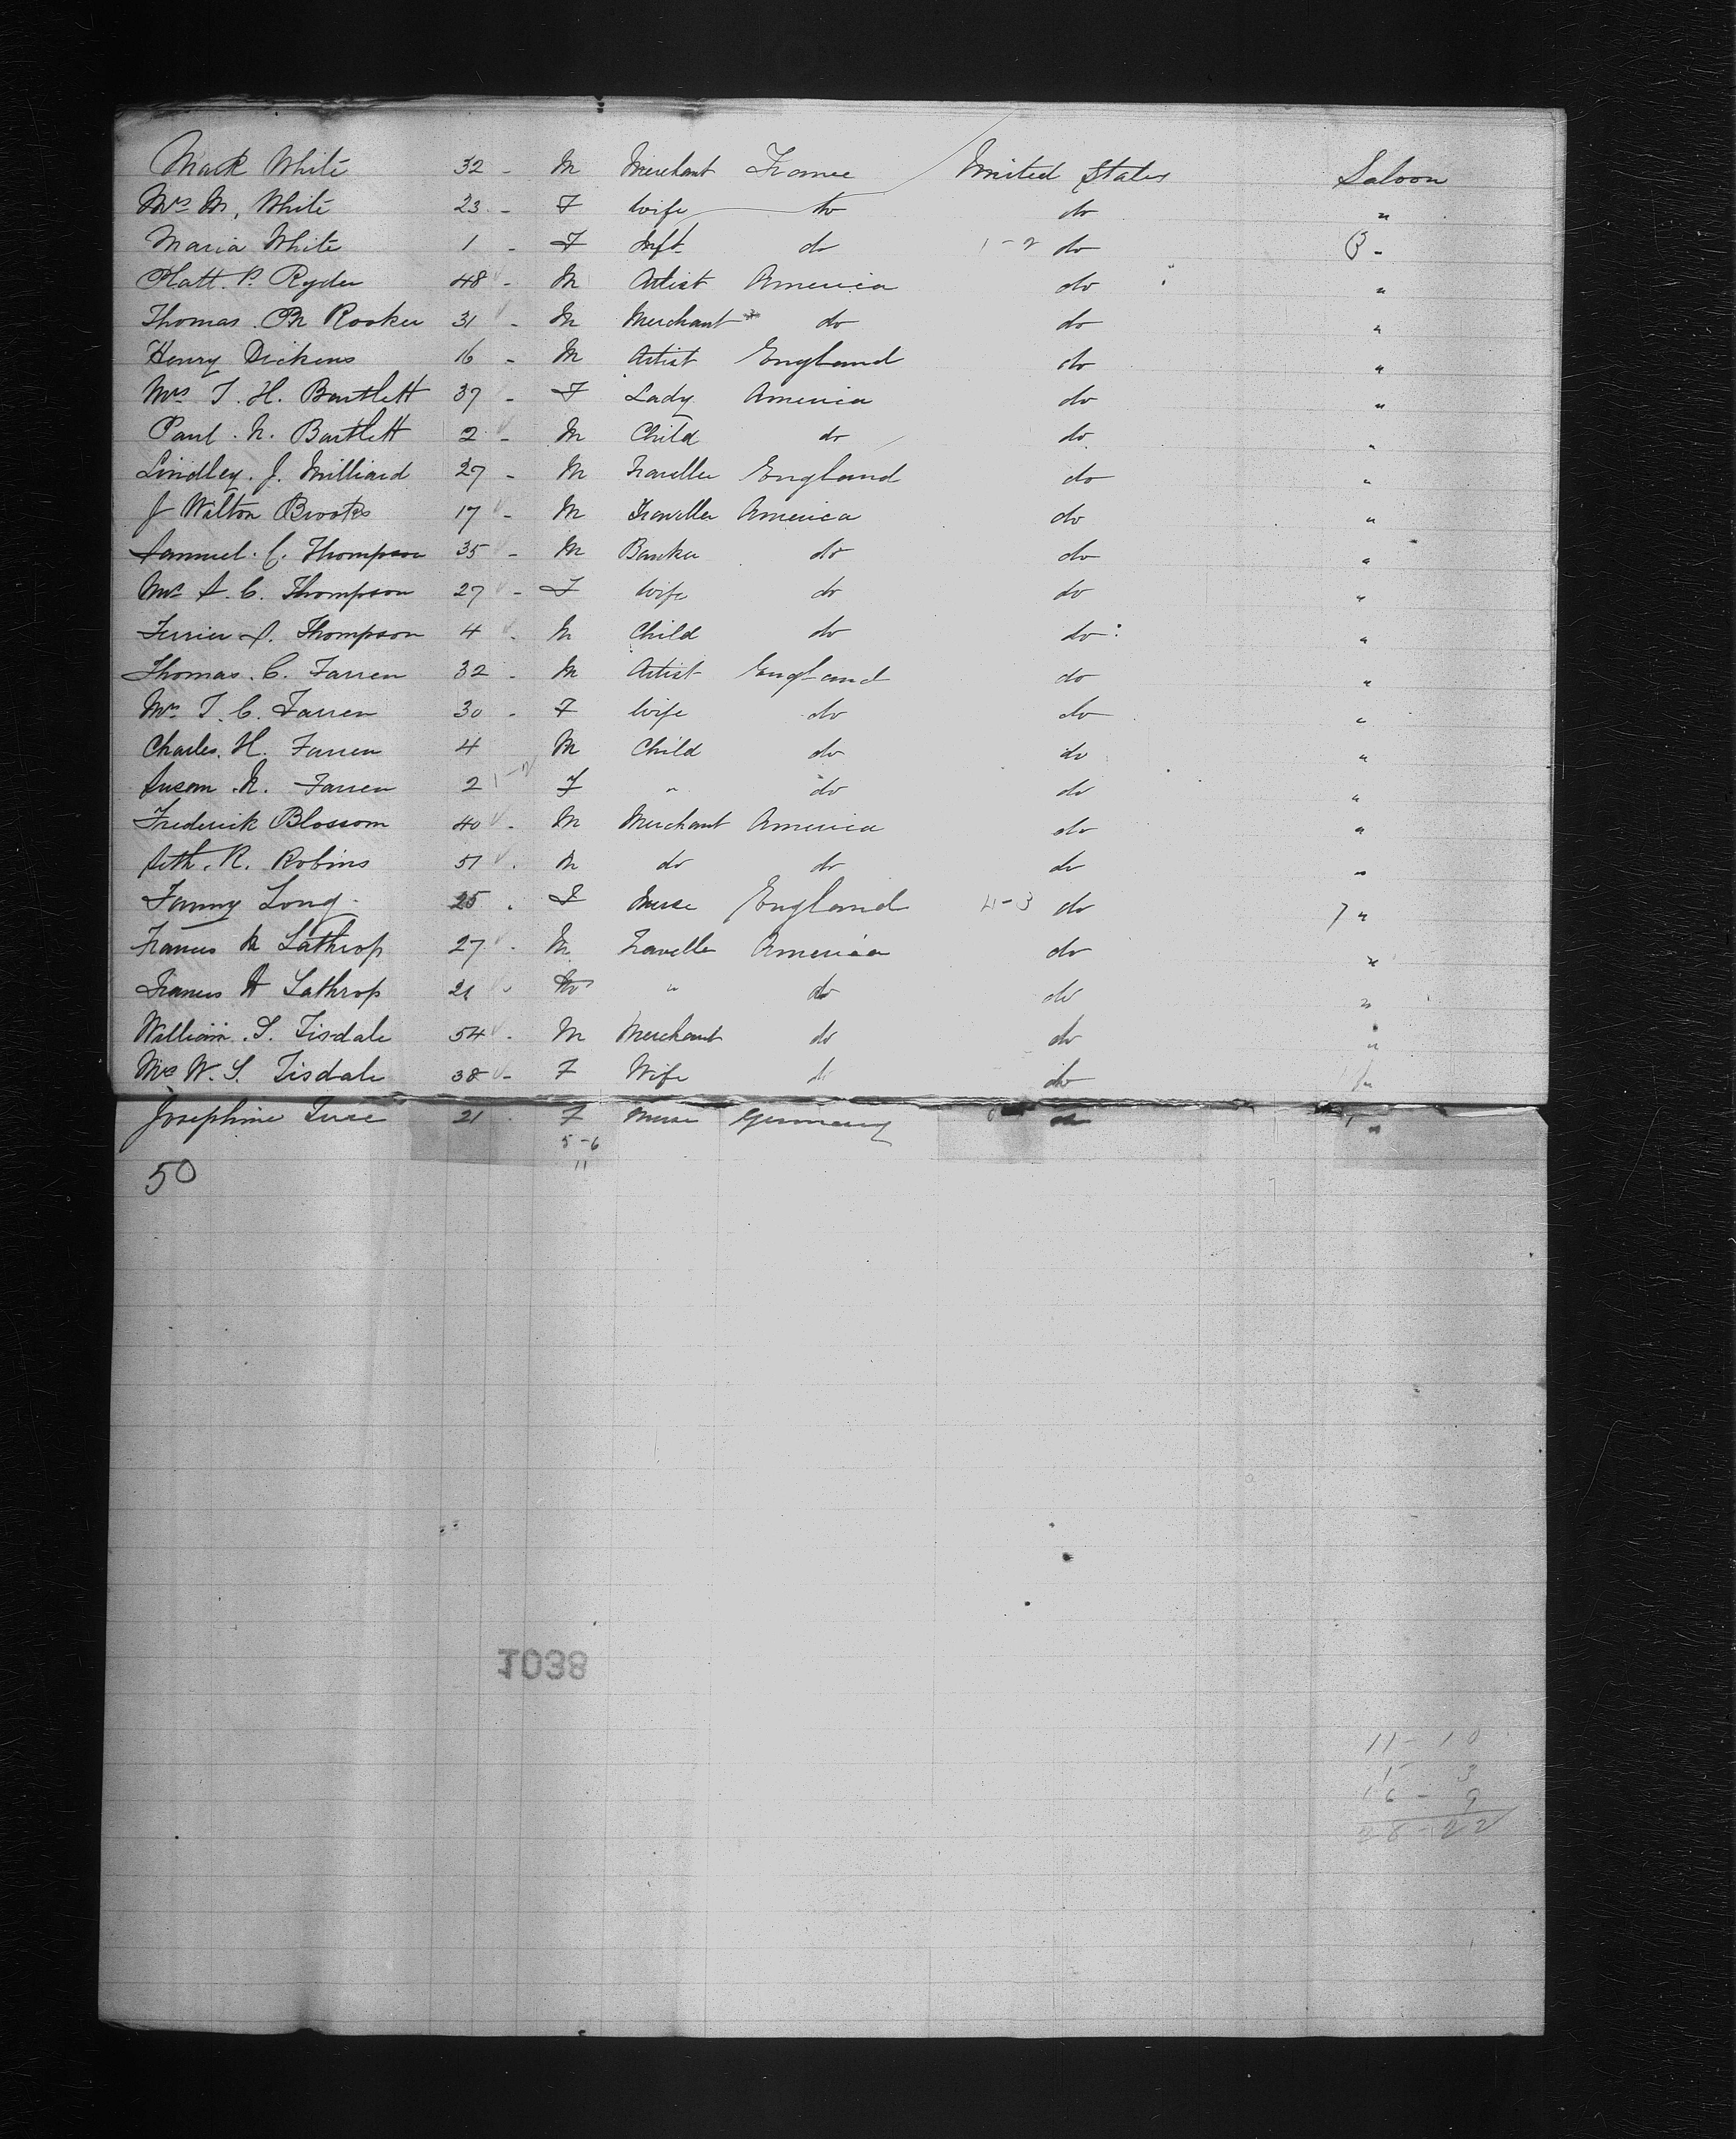 Mark White 32 - M Merchant France United States Saloon
Mrs M, White 23 - F wife do do "
Maria White 1 - F Inft do 1-2 do "
Platt. P. Ryder 48 - M Artist America do "
Thomas. M Rooker 31 - M Merchant do do "
Henry Dickens 16 - M Artist England do "
Mrs T. H. Bartlett 37 - F Lady America do "
Paul. N. Bartlett 2 - M Child do do "
Lindley. J. Milliard 27 - M Traveller England do "
J Walton Brooks 17 - M Traveller America do "
Samuel. C. Thompson 35 - M Banker do do "
Mrs S. C. Thompson 27 - F Wife do do "
Ferrier S. Thompson 4 - M Child do do "
Thomas. C. Farren 32 - M Artist England do "
Mrs T. C. Farren 30 - F wife do do "
Charles. H. Farren 4 M Child do do "
Susan. N. Farren 2 1-2 F " do do "
Frederick Blossom 40 - M Merchant America do "
Seth. R. Robins 51 . M do do do "
Fanny Long 25 . F Nurse England 4-3 do 7 "
Francis M Lathrop 27 - M Traveller America do "
Francis H Lathrop 21 " do do "
William. S. Tisdale 54 - M Merchant do do "
Mrs W. S. Tisdale 38 - F Wife do do "
Josephine 21 . F Nurse Germany "
5-6
11
50
1038
11 - 10
1 3
16 - 9
28 - 22